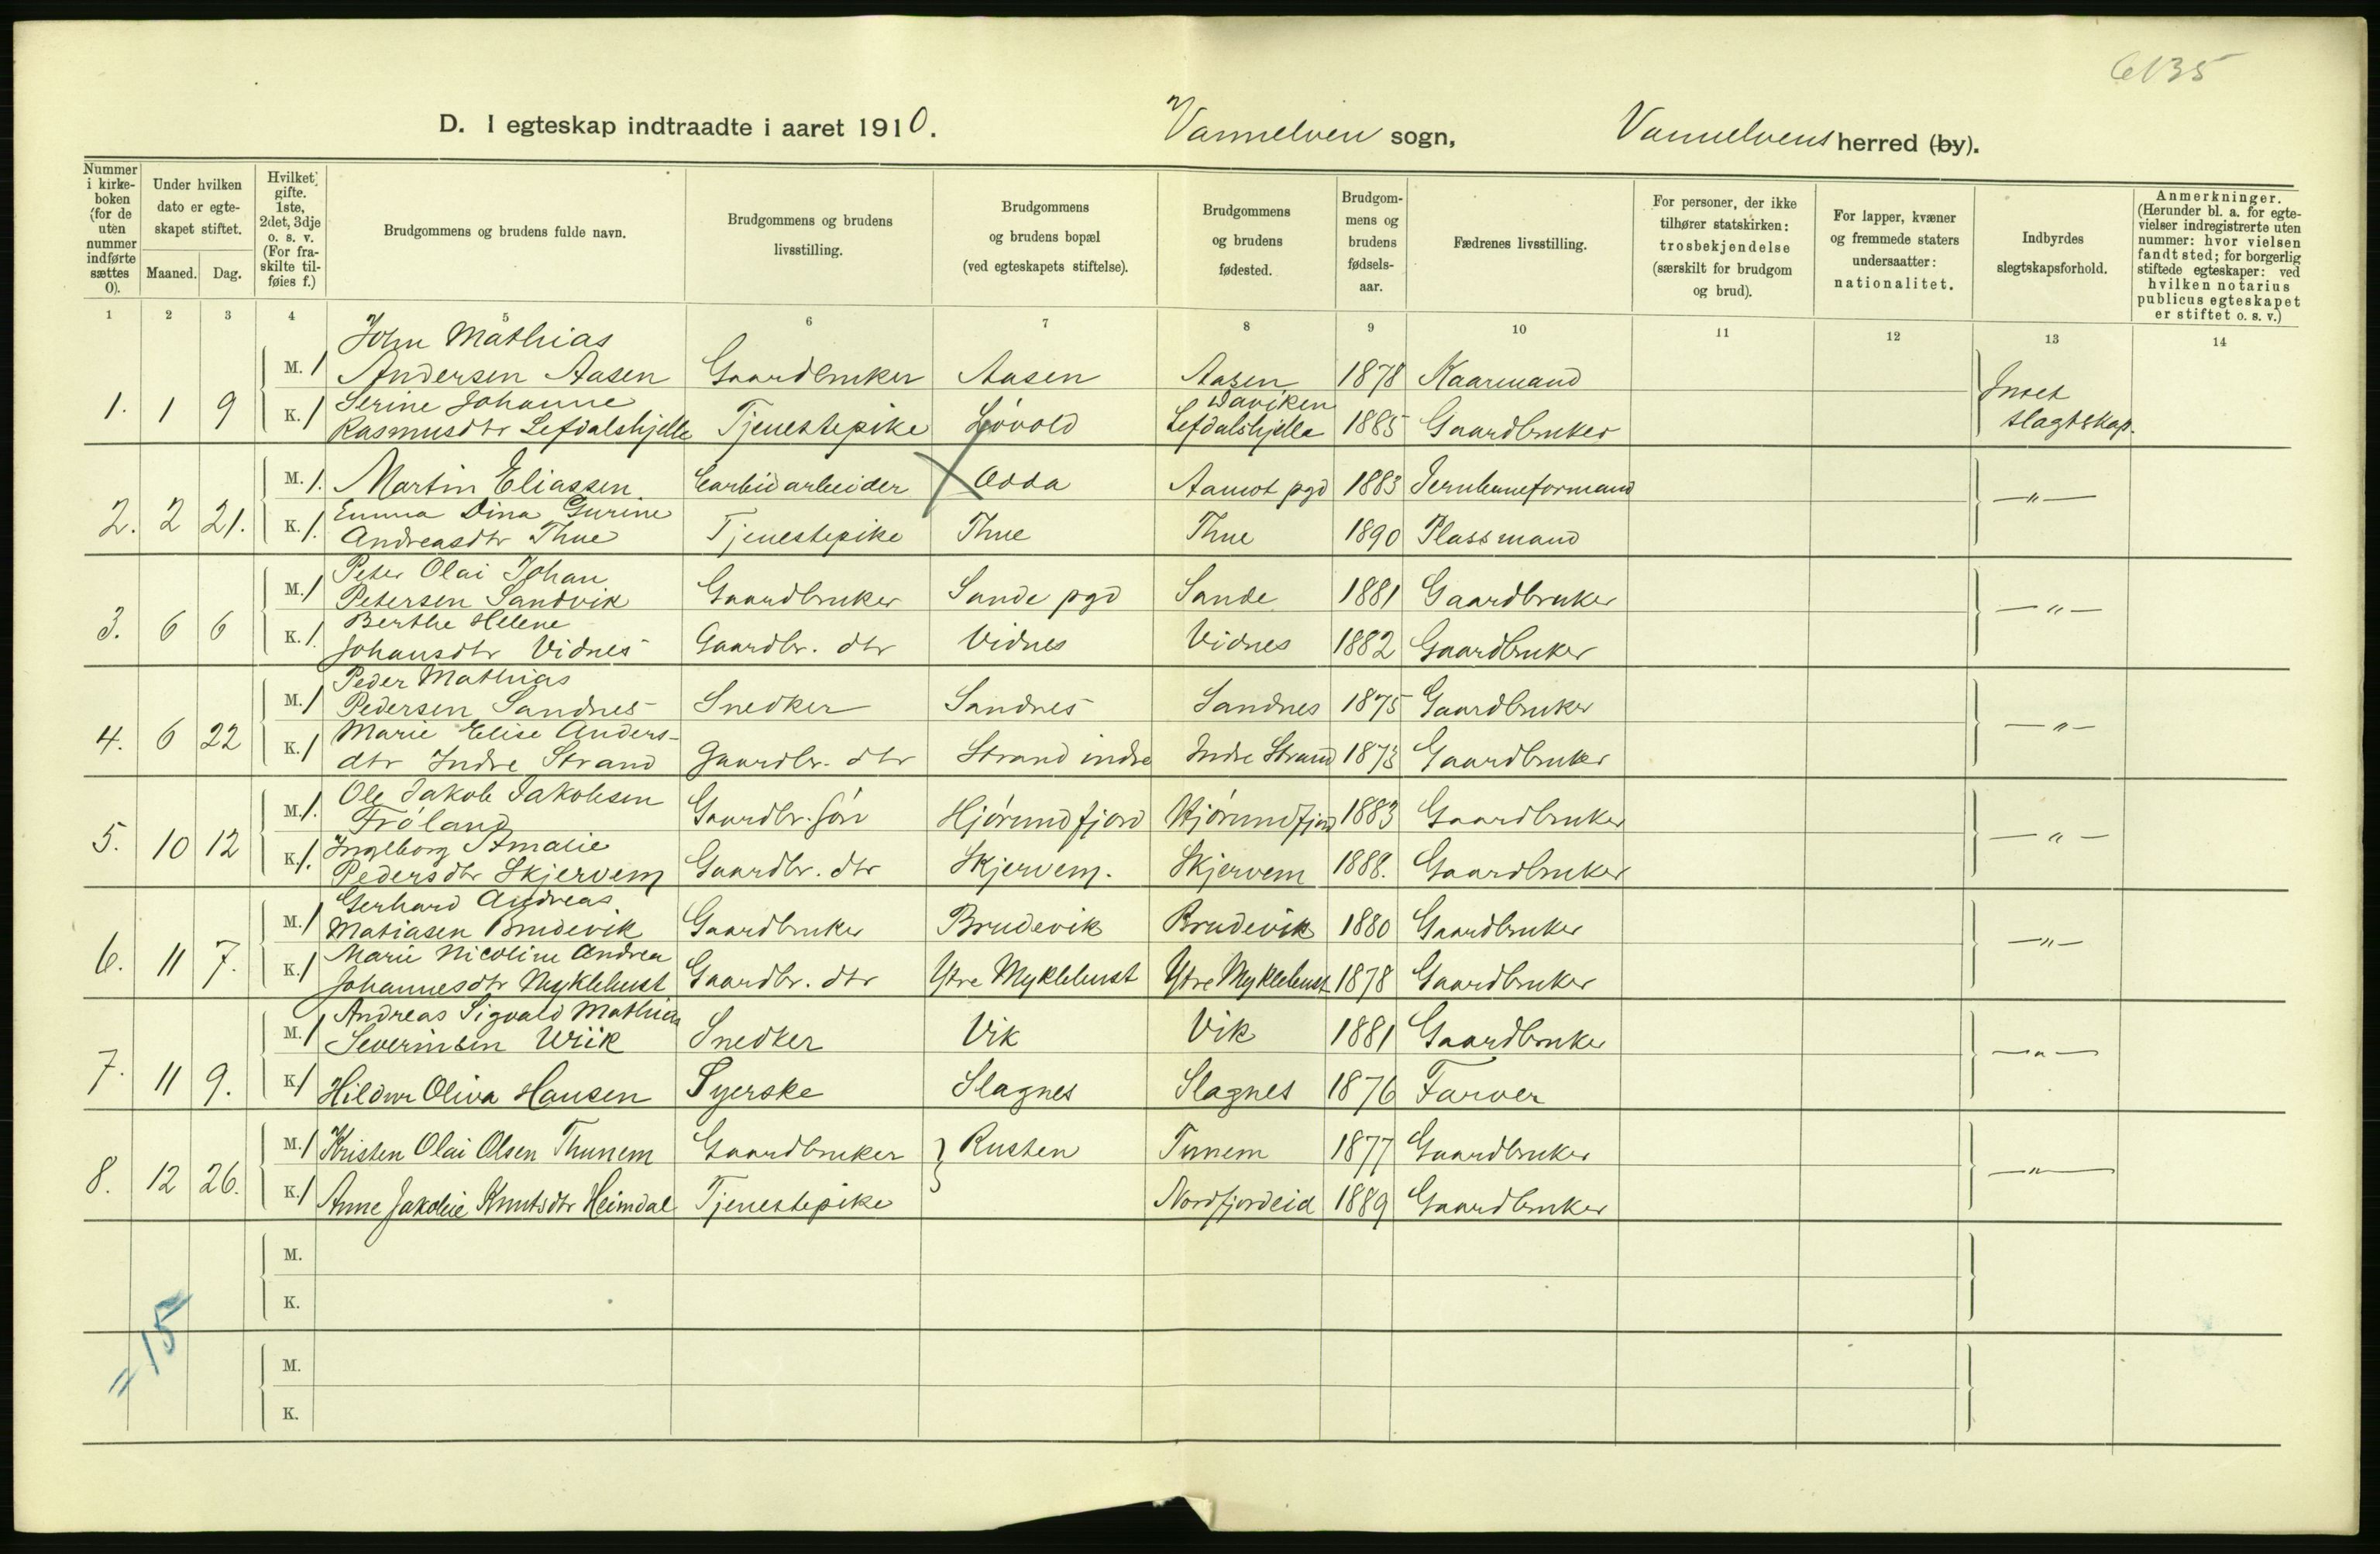 6135
D. I egteskap indtraadte i aaret 1910. Vannelven sogn, Vannelvens herred (by).
Nummer i kirke-boken (for de uten nummer indførte sættes 0).
Under hvilken dato er egte-skapet stiftet.
Maaned. Dag.
Hvilket gifte. 1ste, 2det, 3dje o. s. v. (For fra-skilte til-føies f.)
Brudgommens og brudens fulde navn.
Brudgommens og brudens livsstilling.
Brudgommens og brudens bopæl (ved egteskapets stiftelse).
Brudgommens og brudens fødested.
Brudgom-mens og brudens fødsels-aar.
Fædrenes livsstilling.
For personer, der ikke tilhører statskirken: trosbekjendelse (særskilt for brudgom og brud).
For lapper, kvæner og fremmede staters undersaatter: nationalitet.
Indbyrdes slegtskapsforhold.
Anmerkninger. (Herunder bl. a. for egte-vielser indregistrerte uten nummer: hvor vielsen fandt sted; for borgerlig stiftede egteskaper: ved hvilken notarius publicus egteskapet er stiftet o. s. v.)
1 2 3 4 5 6 7 8 9 10 11 12 13 14
John Mathias
M. 1 Andersen Aasen Gaardbruker Aasen Aasen 1878 Kaarmand
1. 1 9 Intet slagtskap.
Serine Johanne Daviken
K. 1 Rasmusdtr Lefdalshjelle Tjenestepike Løvold Lefdalshjelle 1885 Gaardbruker
M. 1. Martin Eliassen. Carbidarbeider Odda Aamot pgd 1883 Jernbaneformand
2. 2 21. —"—
Emma Dina Gurine
K. 1. Andreasdtr Thue Tjenestepike Thue Thue 1890 Plassmand
Peter Olai Johan
M. 1 Petersen Sandvik Gaardbruker Sande pgd Sande 1881 Gaardbruker
3. 6 6 —"—
Berthe Helene
K. 1. Johansdtr Vidnes Gaardbr. dtr Vidnes Vidnes 1882 Gaardbruker
Peder Mathias
M. 1 Pedersen Sandnes Snedker Sandnes Sandnes 1875 Gaardbruker
4. 6 22 —"—
Marie Elise Anders-
K. 1 dtr Indre Strand Gaardbr. dtr Strand indre Indre Strand 1873 Gaardbruker
Ole Jakob Jakobsen
M. 1. Frøland Gaardbr. søn Hjørundfjord Hjørundfjord 1883 Gaardbruker
5. 10 12 —"—
Ingeborg Amalie
K. 1. Pedersdtr Skjervem Gaardbr. dtr Skjervem. Skjervem 1888. Gaardbruker
Gerhard Andreas
M. 1 Matiasen Brudevik Gaardbruker Brudevik Brudevik 1880 Gaardbruker
6. 11 7. —"—
Marie Nicoline Andrea
K. 1 Johannesdtr Myklebust Gaardbr. dtr Ytre Myklebust Ytre Myklebust 1878 Gaardbruker
Andreas Sigvald Mathias
M. 1 Severinsen Wiik Snedker Vik Vik 1881 Gaardbruker
7. 11 9. —"—
K. 1 Hildur Oliva Hansen Syerske Slagnes Slagnes 1876 Farver
M. 1 Kristen Olai Olsen Thunem Gaardbruker } Rusten Tunem 1877 Gaardbruker
8. 12 26. —"—
K. 1 Anne Jakobie Knutsdtr Heimdal Tjenestepike Nordfjordeid 1889 Gaardbruker
M.
K.
= 15
M.
K.